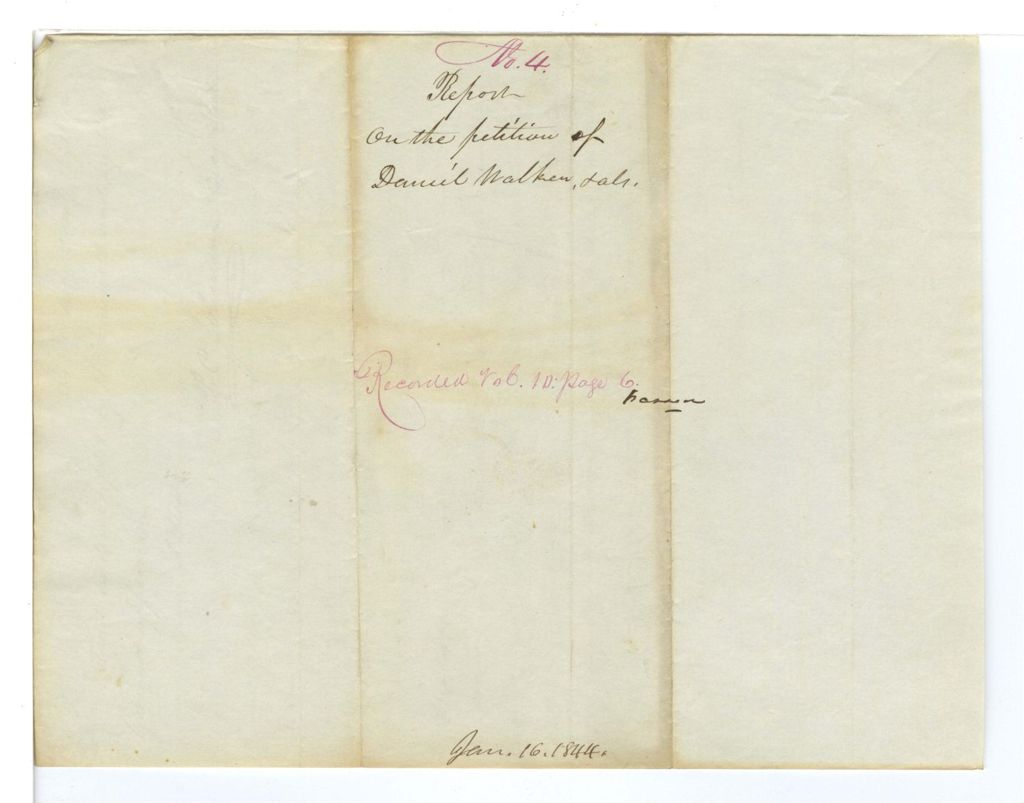 No. 4.
Report
On the petition of
Daniel Walker, & als.
Recorded Vol. 10: page 6.
Jan. 16. 1844.